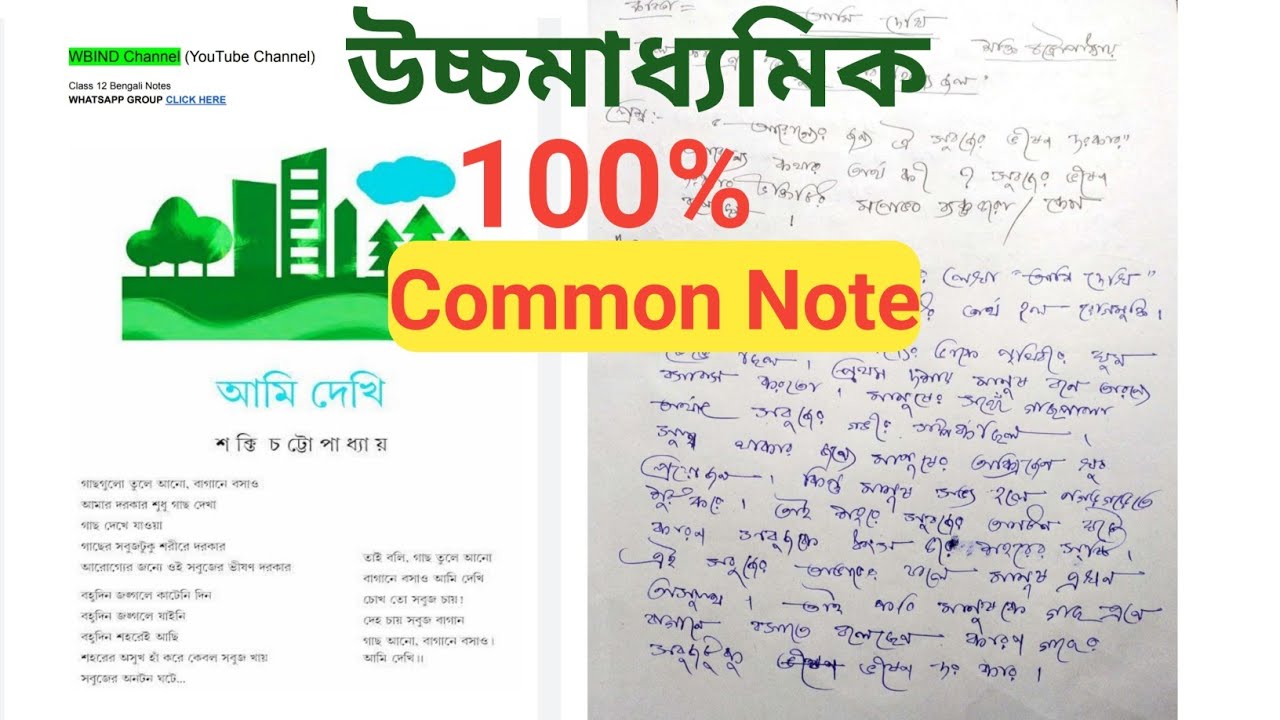 WBIND Channel (YouTube Channel)
Class 12 Bengali Notes
WHATSAPP GROUP CLICK HERE
উচ্চমাধ্যমিক
100%
Common Note
আমি দেখি
শক্তি চট্টোপাধ্যায়
গাছগুলো তুলে আনো, বাগানে বসাও
আমার দরকার শুধু গাছ দেখা
গাছ দেখে যাওয়া
গাছের সবুজটুকু শরীরে দরকার
আরোগ্যের জন্যে ওই সবুজের ভীষণ দরকার
বহুদিন জঙ্গলে কাটেনি দিন
বহুদিন জঙ্গলে যাইনি
বহুদিন শহরেই আছি
শহরের অসুখ হাঁ করে কেবল সবুজ খায়
সবুজের অনটন ঘটে...
তাই বলি, গাছ তুলে আনো
বাগানে বসাও আমি দেখি
চোখ তো সবুজ চায়!
দেহ চায় সবুজ বাগান
গাছ আনো, বাগানে বসাও।
আমি দেখি।।
আমি দেখি
শক্তি চট্টোপাধ্যায়
প্রশ্ন:-
"আরোগ্যের জন্য ঐ সবুজের ভীষণ দরকার"
কথার অর্থ কী ? সবুজের ভীষণ
মনোভাব ব্যক্ত করো / কেন
লেখা "আমি দেখি"
অর্থ হল রোগমুক্তি।
পৃথিবীর
প্রথম দশায় মানুষ বনে অরণ্যে
বসবাস করতো। মানুষের সঙ্গে গাছপালা
অর্থাৎ সবুজের গভীর সম্পর্ক ছিল।
সুস্থ থাকার জন্যে মানুষের অক্সিজেন খুব
প্রয়োজন। কিন্তু মানুষ সভ্য হলে
শুরু করে। তাই শহরে সবুজের অনটন ঘটে
কারণ সবুজকে ধ্বংস করে শহরের সৃষ্টি।
এই সবুজের অভাবের ফলে মানুষ এখন
অসুস্থ। তাই কবি মানুষকে গাছ এনে
বাগানে বসাতে বলেছেন কারণ গাছের
সবুজটুকু ভীষণ দরকার।